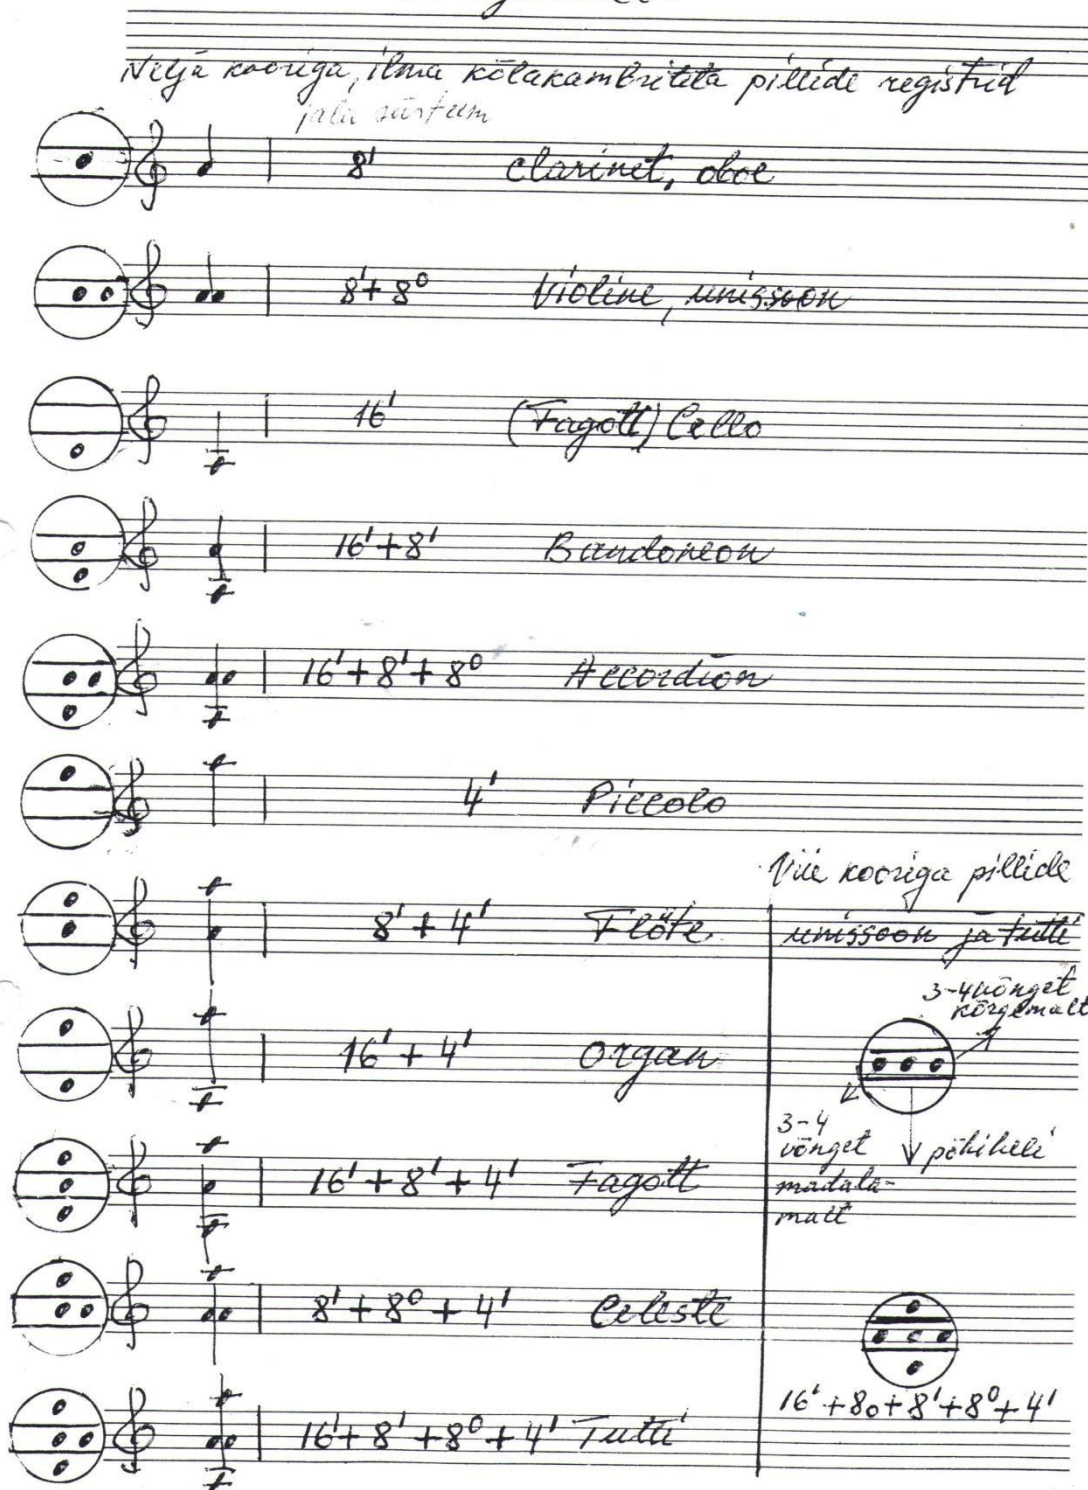 Nelja kooriga, ilma kõlakambriteta pillide registrid
8' clarinet, oboe
8' + 8° Violine, unissoon
16' (Fagott) Cello
16' + 8' Bandoneon
16' + 8' + 8° Accordion
4' Piccolo
8' + 4' Flöte
16' + 4' Organ
16' + 8' + 4' Fagott
8' + 8° + 4' Celeste
16' + 8' + 8° + 4' Tutti
Viie kooriga pillide
unissoon ja tutti
3-4 võnget
kõrgemalt
3-4
võnget
madala-
malt
põhiheli
16' + 8₀ + 8' + 8° + 4'